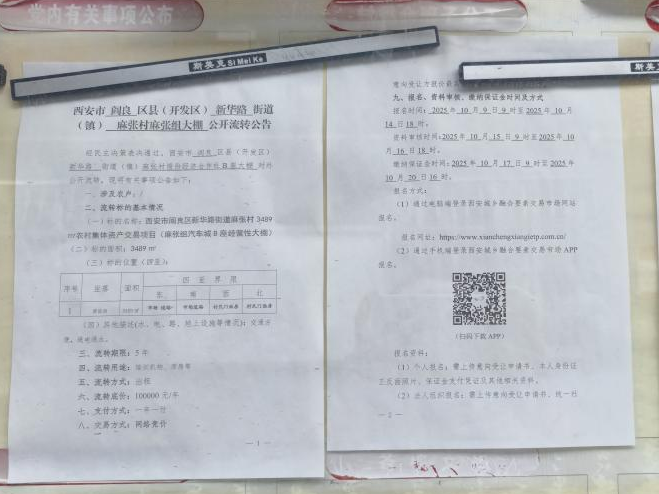 党内有关事项公布
斯美克 Si Mei Ke
西安市 阎良 区县（开发区） 新华路 街道
（镇） 麻张村麻张组大棚 公开流转公告
经民主决策表决通过，西安市 阎良 区县（开发区）
新华路 街道（镇）
公开流转，现将有关事项公告如下：
一、涉及农户：/
二、流转标的基本情况
（一）标的名称：西安市阎良区新华路街道麻张村 3489
㎡农村集体资产交易项目（麻张组汽车城 B 座经营性大棚）
（二）面积：3489 ㎡
（三）标的位置（四至）：
序号 面积 四至界限
东 南 西 北
1
（四）其他描述(水、电、路、地上设施等情况)：交通方
便，通电通水。
三、流转期限：5 年
四、流转用途：
五、流转方式：出租
六、流转底价：100000 元/年
七、支付方式：一年一付
八、交易方式：网络竞价
- 1 -
意向受让方报价最高
九、报名、资料审核、缴纳保证金时间及方式
报名时间：2025 年 10 月 9 日 9 时至 2025 年 10 月
14 日 18 时。
资料审核时间：2025 年 10 月 15 日 9 时至 2025 年 10
月 16 日 18 时。
缴纳保证金时间：2025 年 10 月 17 日 9 时至 2025 年
10 月 20 日 16 时。
报名方式：
（1）通过电脑端登录西安城乡融合要素交易市场网站
报名。
报名网址：https://www.xianchengxiangjetp.com.cn/
（2）通过手机端登录西安城乡融合要素交易市场 APP
报名。
（扫码下载 APP）
报名资料：
（1）个人报名：需上传意向受让申请书、本人身份证
正反面照片、保证金支付凭证及其他相关资料。
（2）法人组织报名：需上传意向受让申请书、统一社
- 2 -